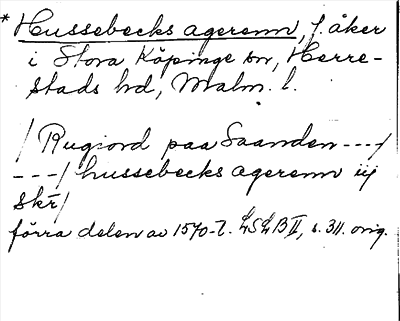 * Hussebecks agerenn, f. åker
i Stora Köpinge sn, Herre-
stads hd, Malm. l.
/ Rugiord paa Saanden ---/
---/ hussebecks agerenn iij
skr̄ /
förra delen av 1570-t. LSLB II, s. 311. orig.